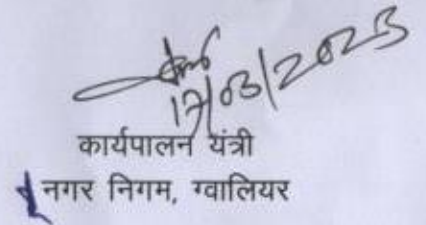 17/03/2023
कार्यपालन यंत्री
नगर निगम, ग्वालियर